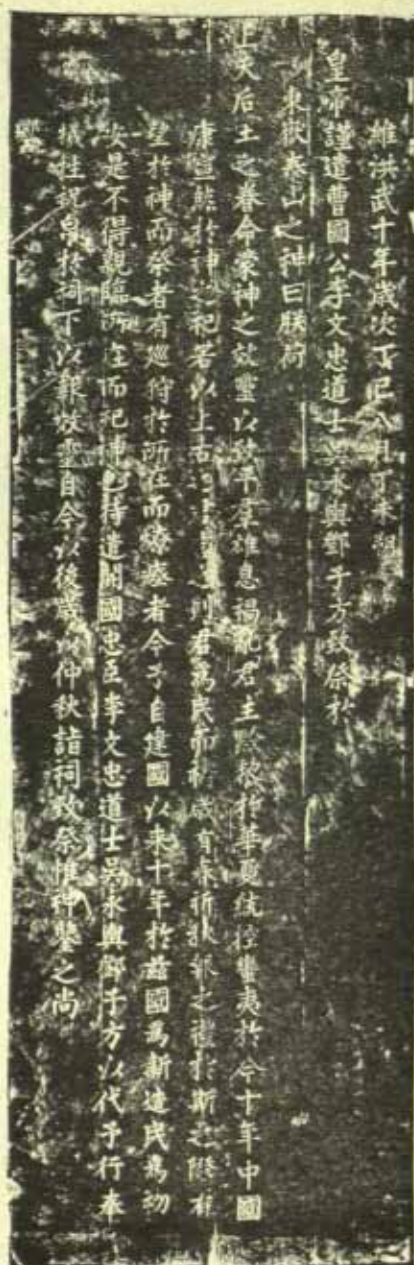 維洪武十年歲次丁巳八月丁未朔
皇帝謹遣曹國公李文忠道士吳永與鄧子方致祭於
東嶽泰山之神曰朕荷
上天后土之眷命蒙神之效靈以致平羣雄息禍亂君主黔黎於華夏統控蠻夷於今十年中國
康寧然於神之祀若以上古之君為民而祈歲有春祈秋報之禮於斯之際有
望於神而祭者有巡狩於所在而燎瘞者今予自建國以來十年於茲國為新造民為初
安是不得親臨所在而祀神也特遣開國忠臣李文忠道士吳永與鄧子方以代予行奉
犧牲祝帛於祠下以報效靈自今以後歲以仲秋詣祠致祭惟神鑒之尚
饗